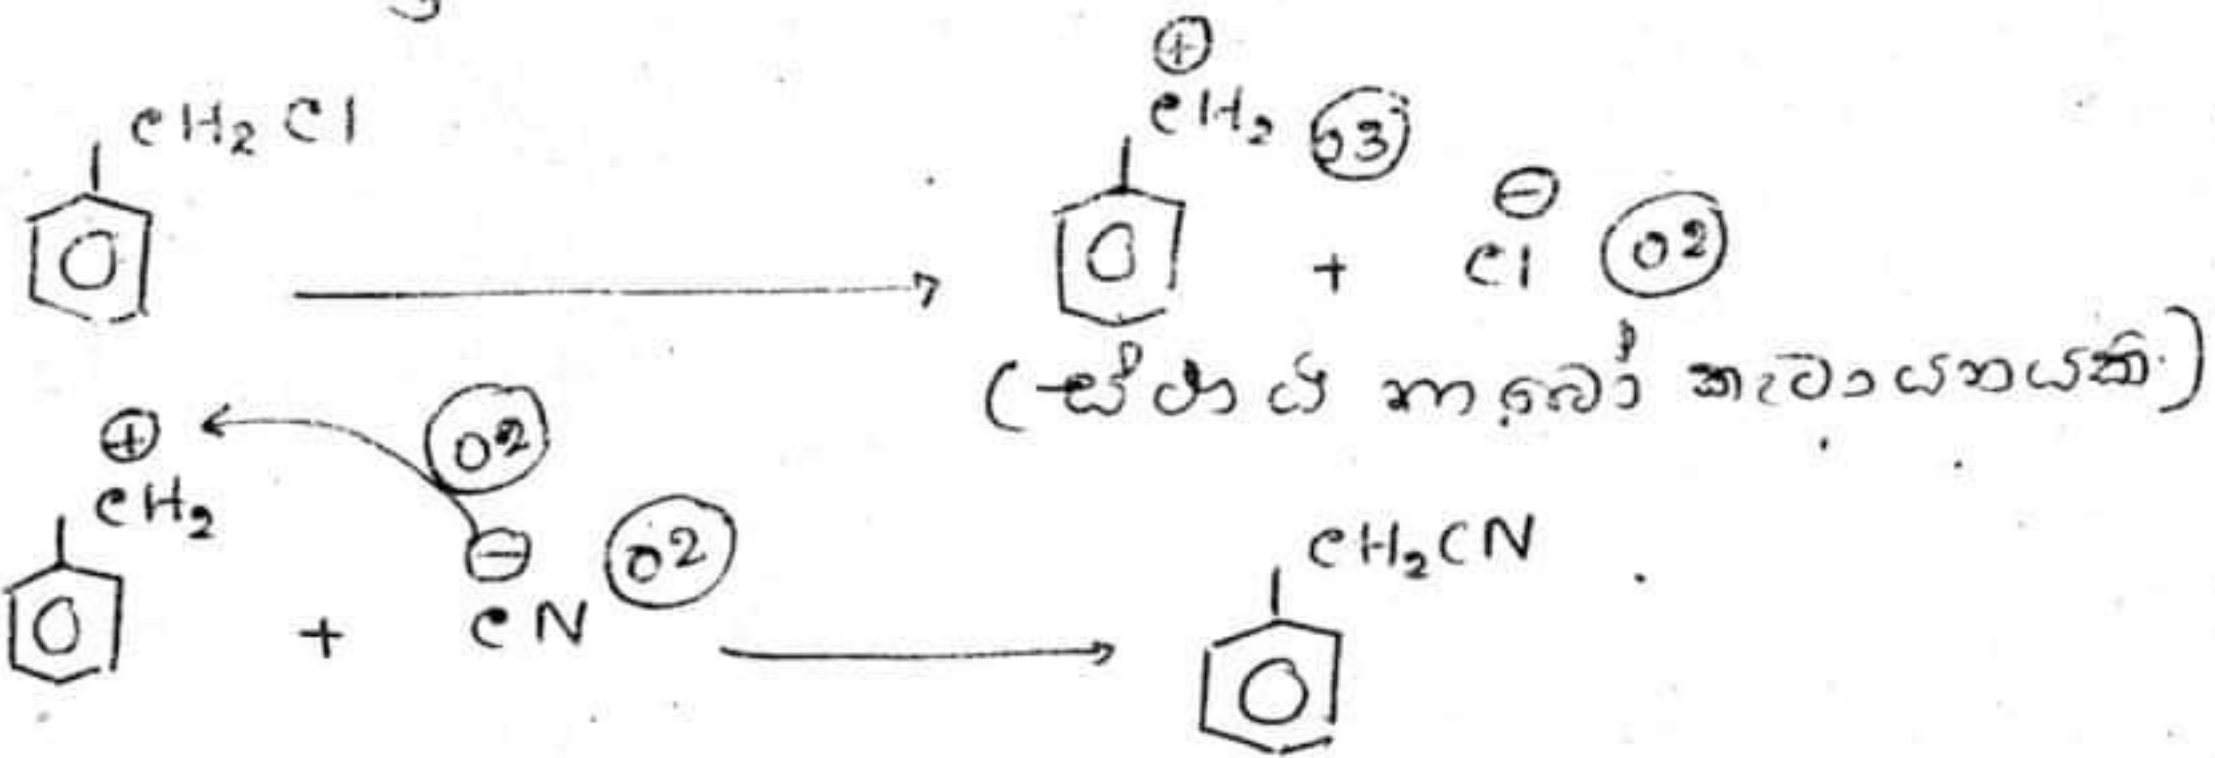 CH₂Cl
⊕
CH₂ 03
+ ⊖ Cl 02
(ස්ථායී කාබෝ කැටායනයකි.)
⊕ 02
CH₂
+ ⊖ CN 02
CH₂CN